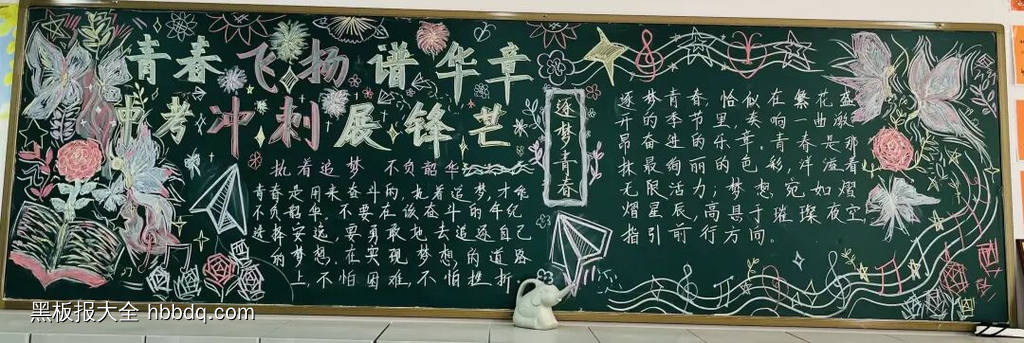 青春飞扬谱华章
中考冲刺展锋芒
执着追梦 不负韶华
青春是用来奋斗的,执着追梦,才能
不负韶华,不要在该奋斗的年纪
选择安逸,要勇敢地去追逐自己
的梦想,在实现梦想的道路
上,不怕困难,不怕挫折,
逐梦青春
逐梦青春,恰似在繁花盛
开的季节里,奏响一曲激
昂奋进的乐章。青春是那
抹最绚丽的色彩,洋溢着
无限活力,梦想宛如熠
熠星辰,高悬于璀璨夜空,
指引前行方向。
黑板报大全 hbbdq.com